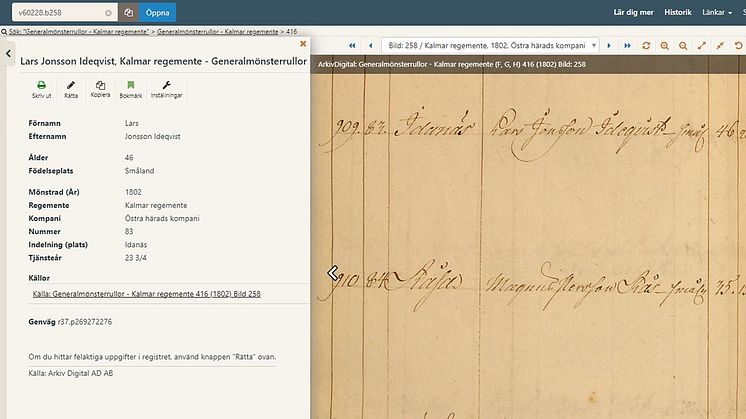 v60228.b258 Öppna Lär dig mer Historik Länkar
Sök: "Generalmönsterrullor - Kalmar regemente" > Generalmönsterrullor - Kalmar regemente > 416
Bild: 258 / Kalmar regemente, 1802. Östra härads kompani
ArkivDigital: Generalmönsterrullor - Kalmar regemente (F, G, H) 416 (1802) Bild: 258
Lars Jonsson Ideqvist, Kalmar regemente - Generalmönsterrullor
Skriv ut Rätta Kopiera Bokmärk Inställningar
Förnamn Lars
Efternamn Jonsson Ideqvist
Ålder 46
Födelseplats Småland
Mönstrad (År) 1802
Regemente Kalmar regemente
Kompani Östra härads kompani
Nummer 83
Indelning (plats) Idanäs
Tjänsteår 23 3/4
Källor
Källa: Generalmönsterrullor - Kalmar regemente 416 (1802) Bild 258
Genväg r37.p269272276
Om du hittar felaktiga uppgifter i registret, använd knappen "Rätta" ovan.
Källa: Arkiv Digital AD AB
909. 83. Idanäs Lars Jonsson Ideqvist Smål 46
910 84 Magnus Persson Smål 45.